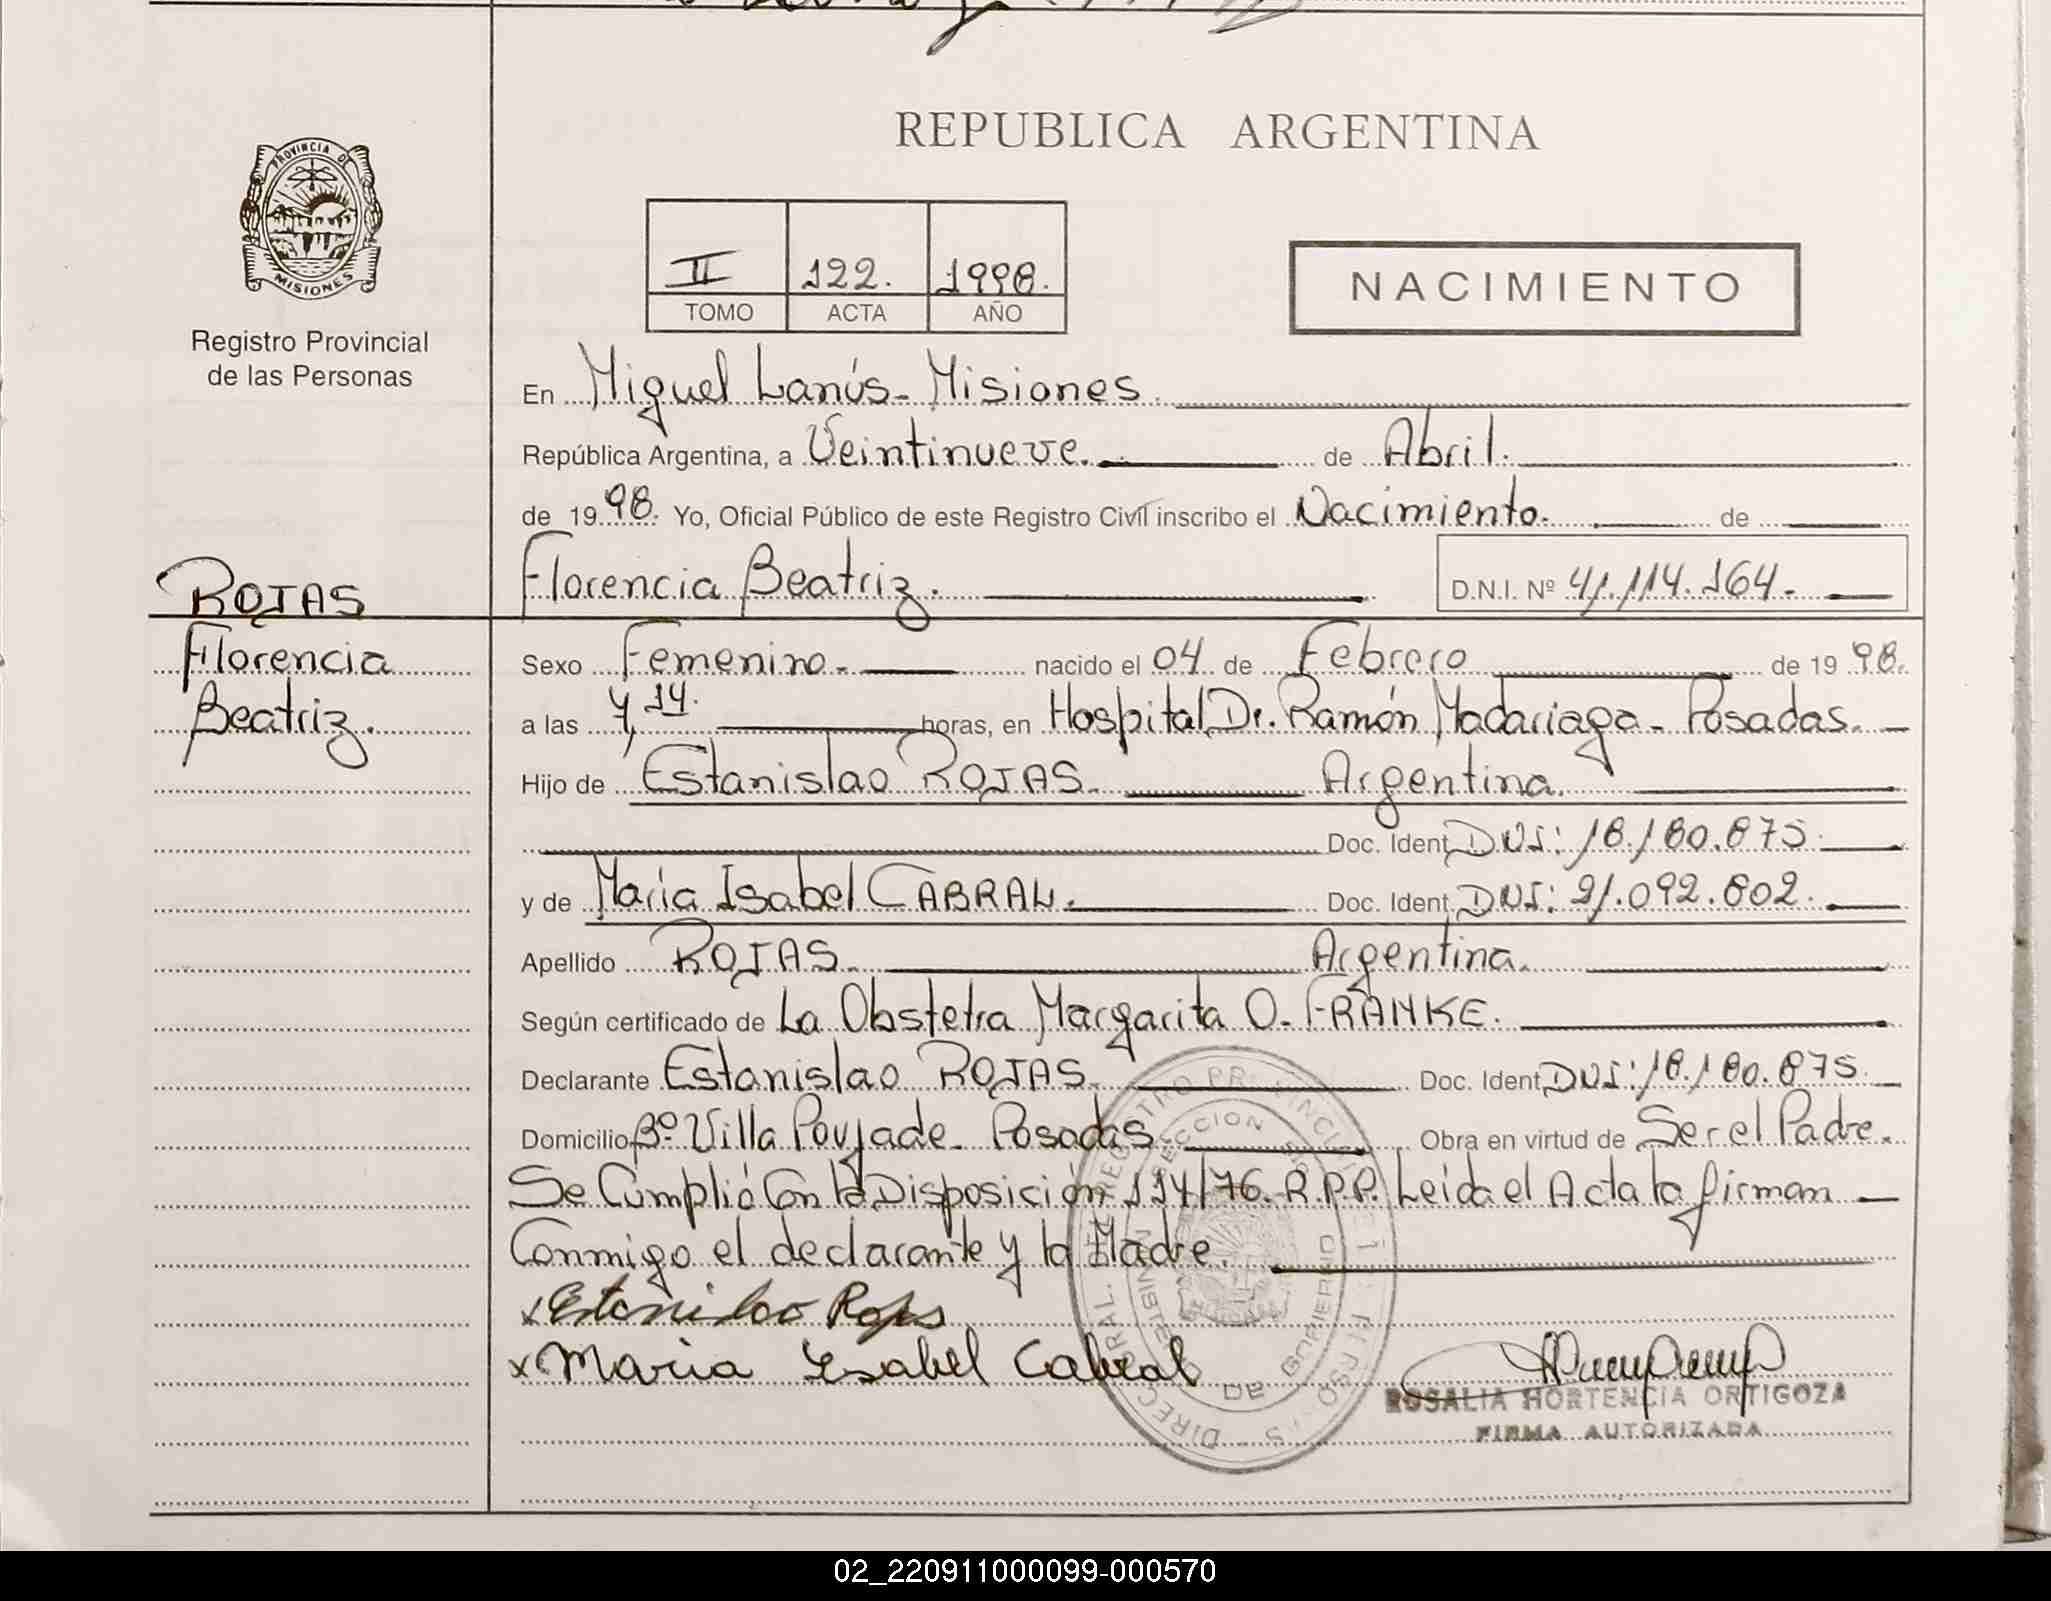 PROVINCIA DE
MISIONES
Registro Provincial
de las Personas
REPUBLICA ARGENTINA
II 122. 1998.
TOMO ACTA AÑO
NACIMIENTO
En Miguel Lanús - Misiones.
República Argentina, a Veintinueve. de Abril.
de 1998. Yo, Oficial Público de este Registro Civil inscribo el Nacimiento. de
ROJAS
Florencia Beatriz. D.N.I. Nº 41.114.164.-
Florencia
Beatriz.
Sexo Femenino.- nacido el 04 de Febrero de 1998.
a las 4,14. horas, en Hospital Dr. Ramón Madariaga - Posadas. -
Hijo de Estanislao ROJAS. Argentina.
Doc. Ident. DNI: 18.180.875.
y de María Isabel CABRAL. Doc. Ident. DNI: 21.092.802.
Apellido ROJAS. Argentina.
Según certificado de La Obstetra Margarita O. FRANKE.
Declarante Estanislao ROJAS. Doc. Ident. DNI: 18.180.875.
Domicilio Bº Villa Poujade - Posadas. Obra en virtud de Ser el Padre.
Se Cumplió Con la Disposición 114/76. R.P.P. Leída el Acta la firman
Conmigo el declarante y la Madre.
x Estanislao Rojas
x Maria Ysabel Cabral
ROSALIA HORTENCIA ORTIGOZA
FIRMA AUTORIZADA
02_220911000099-000570